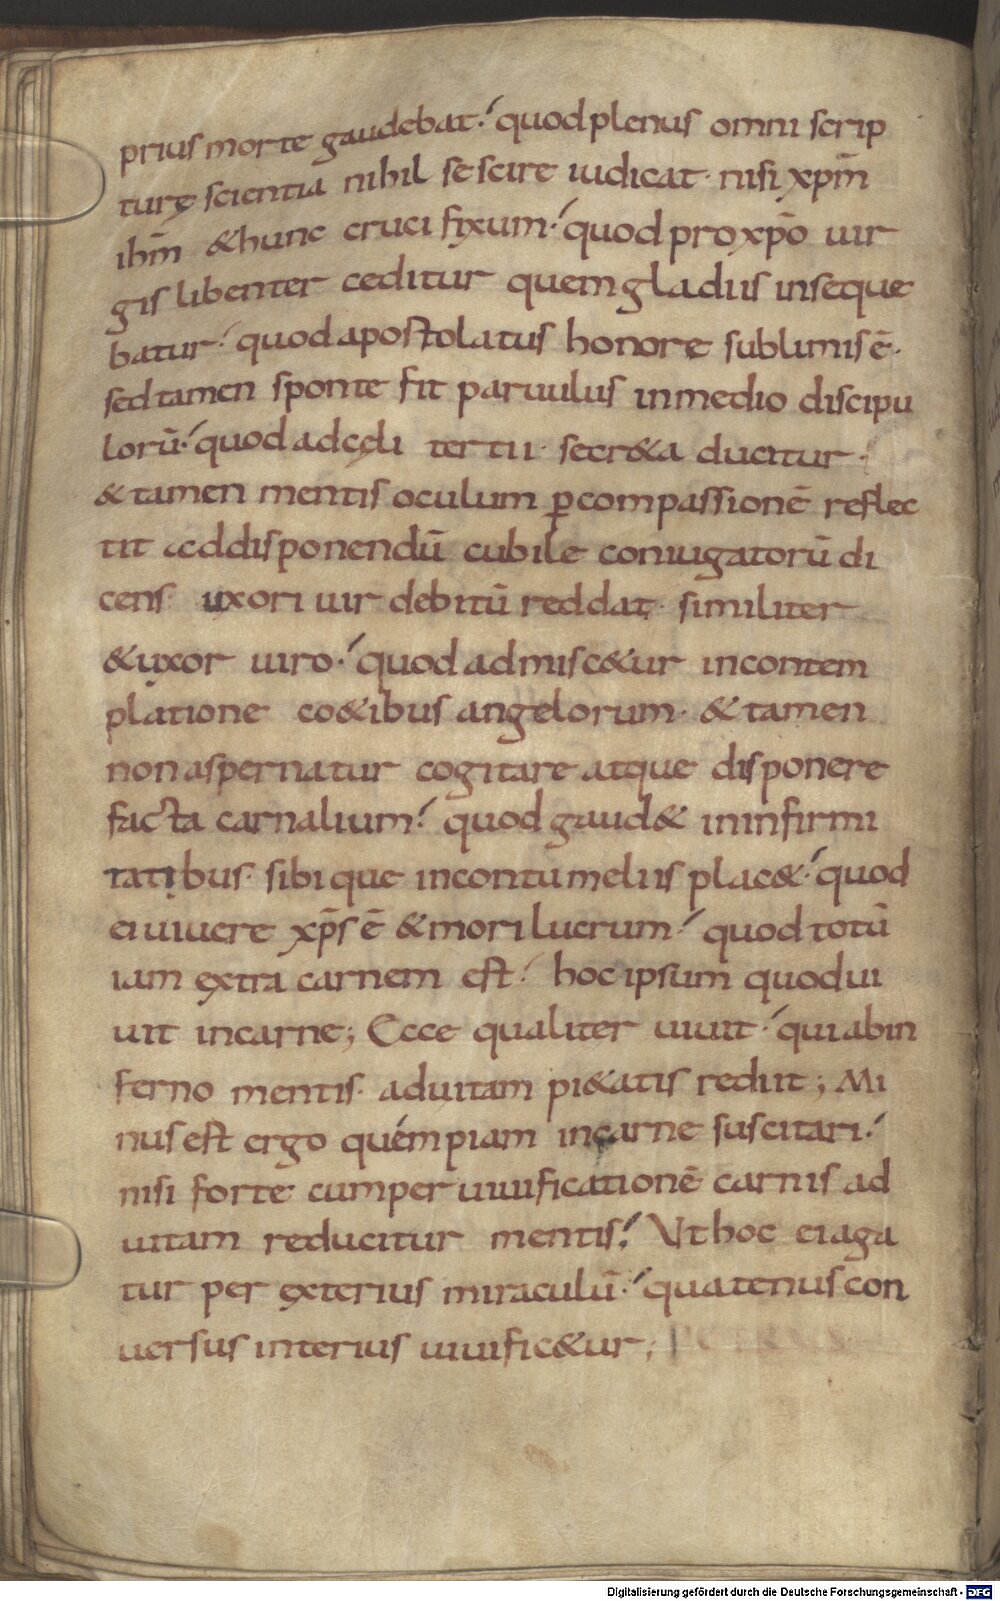 prius morte gaudebat. quod plenus omni scrip
turę scientia nihil se scire iudicat. nisi xp̄m
ih̄m & hunc cruci fixum. quod pro xp̄o uir
gis libenter ceditur quem gladiis inseque
batur. quod apostolatus honore sublimis ē.
sed tamen sponte fit paruulus in medio discipu
lorū. quod ad cęli tertii. secr&a ducitur.
& tamen mentis oculum ꝑ compassionē reflec
tit ad disponendū cubile coniugatorū di
cens. uxori uir debitū reddat. similiter
& uxor uiro. quod admisc&ur in contem
platione co&ibus angelorum. & tamen
non aspernatur cogitare atque disponere
facta carnalium. quod gaud& in infirmi
tatibus. sibique in contumeliis plac&. quod
ei uiuere xp̄s ē & mori lucrum. quod totū
iam extra carnem est. hoc ipsum quod ui
uit in carne; Ecce qualiter uiuit. qui ab in
ferno mentis. ad uitam pi&atis rediit; Mi
nus est ergo quempiam in carne suscitari.
nisi forte cum per uiuificationē carnis ad
uitam reducitur mentis. Ut hoc ei aga
tur per exterius miraculū. quatenus con
uersus interius uiuific&ur; PETRUS
Digitalisierung gefördert durch die Deutsche Forschungsgemeinschaft - DFG